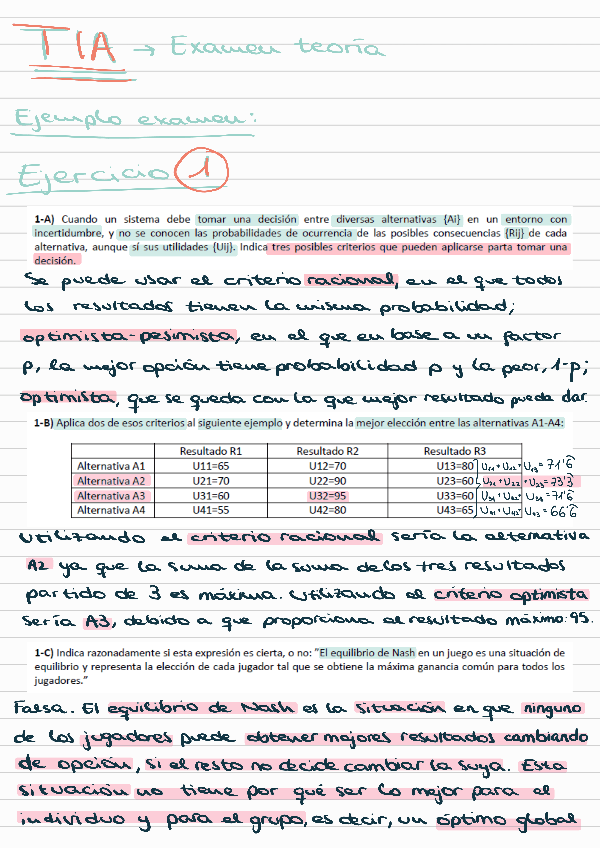 TIA → Examen teoría
Ejemplo examen:
Ejercicio 1
1-A) Cuando un sistema debe tomar una decisión entre diversas alternativas {Ai} en un entorno con
incertidumbre, y no se conocen las probabilidades de ocurrencia de las posibles consecuencias {Rij} de cada
alternativa, aunque sí sus utilidades {Uij}. Indica tres posibles criterios que pueden aplicarse parta tomar una
decisión.
Se puede usar el criterio racional, en el que todos
los resultados tienen la misma probabilidad;
optimista-pesimista, en el que en base a un factor
p, la mejor opción tiene probabilidad p y la peor, 1-p;
optimista, que se queda con la que mejor resultado pueda dar.
1-B) Aplica dos de esos criterios al siguiente ejemplo y determina la mejor elección entre las alternativas A1-A4:
Resultado R1 Resultado R2 Resultado R3
Alternativa A1 U11=65 U12=70 U13=80 U11+U12+U13=71'6
Alternativa A2 U21=70 U22=90 U23=60 U21+U22+U23=73'3
Alternativa A3 U31=60 U32=95 U33=60 U31+U32+U33=71'6
Alternativa A4 U41=55 U42=80 U43=65 U41+U42+U43=66'6
Utilizando el criterio racional sería la alternativa
A2 ya que la suma de la suma de los tres resultados
partido de 3 es máxima. Utilizando el criterio optimista
sería A3, debido a que proporciona el resultado máximo: 95.
1-C) Indica razonadamente si esta expresión es cierta, o no: "El equilibrio de Nash en un juego es una situación de
equilibrio y representa la elección de cada jugador tal que se obtiene la máxima ganancia común para todos los
jugadores."
Falsa. El equilibrio de Nash es la situación en que ninguno
de los jugadores puede obtener mejores resultados cambiando
de opción, si el resto no decide cambiar la suya. Esta
situación no tiene por qué ser lo mejor para el
individuo y para el grupo, es decir, un óptimo global